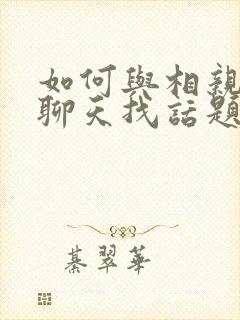 如何與相親
聊天找話題
綦翠華